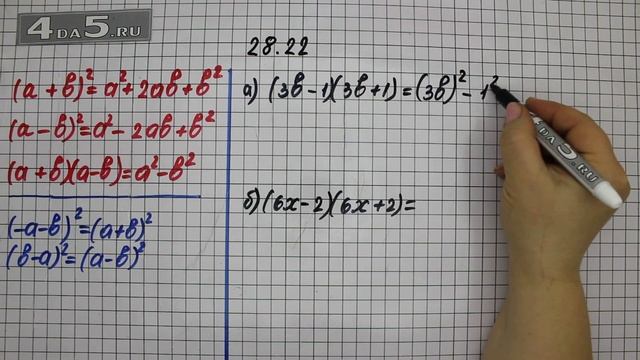 4DA5.RU
28.22
(a + b)² = a² + 2ab + b²
(a - b)² = a² - 2ab + b²
(a + b)(a - b) = a² - b²
(-a - b)² = (a + b)²
(b - a)² = (a - b)²
а) (3b - 1)(3b + 1) = (3b)² - 1²
б) (6x - 2)(6x + 2) =
4DA5.RU